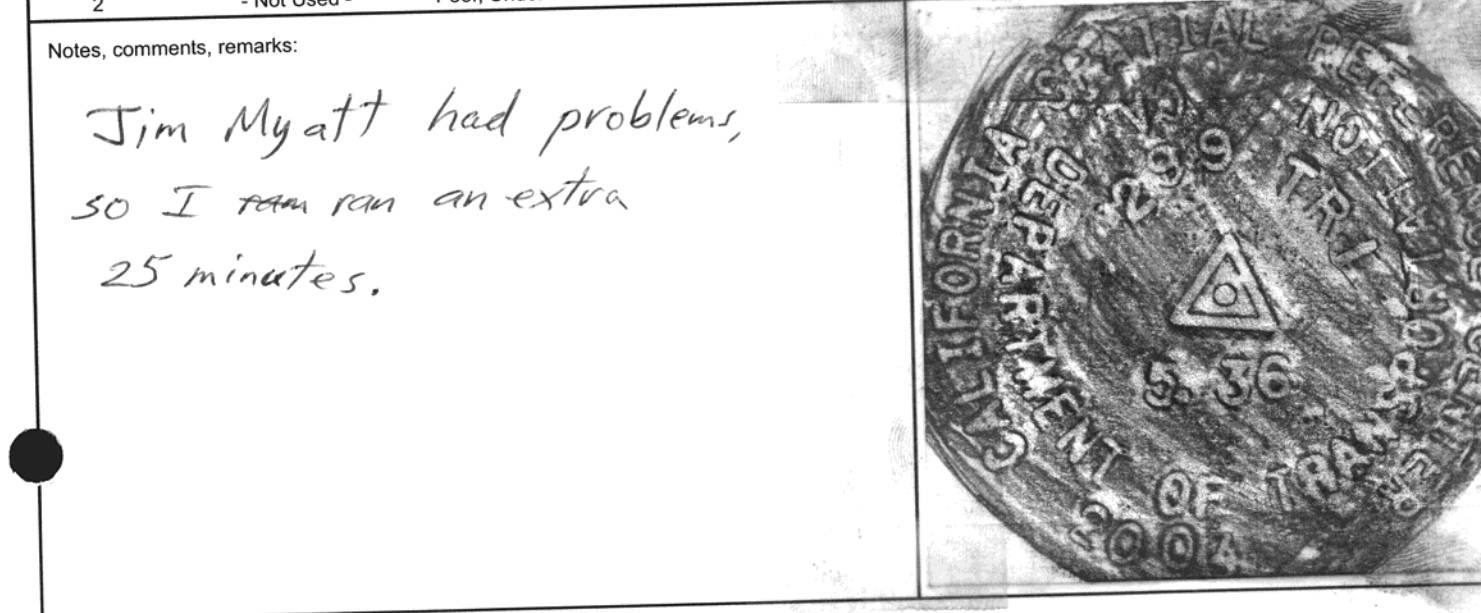 2 - Not Used -
Notes, comments, remarks:
Jim Myatt had problems,
so I ram ran an extra
25 minutes.
CALIFORNIA SPATIAL REFERENCE
DEPARTMENT OF TRANSPOR
TRI
5.36
2004